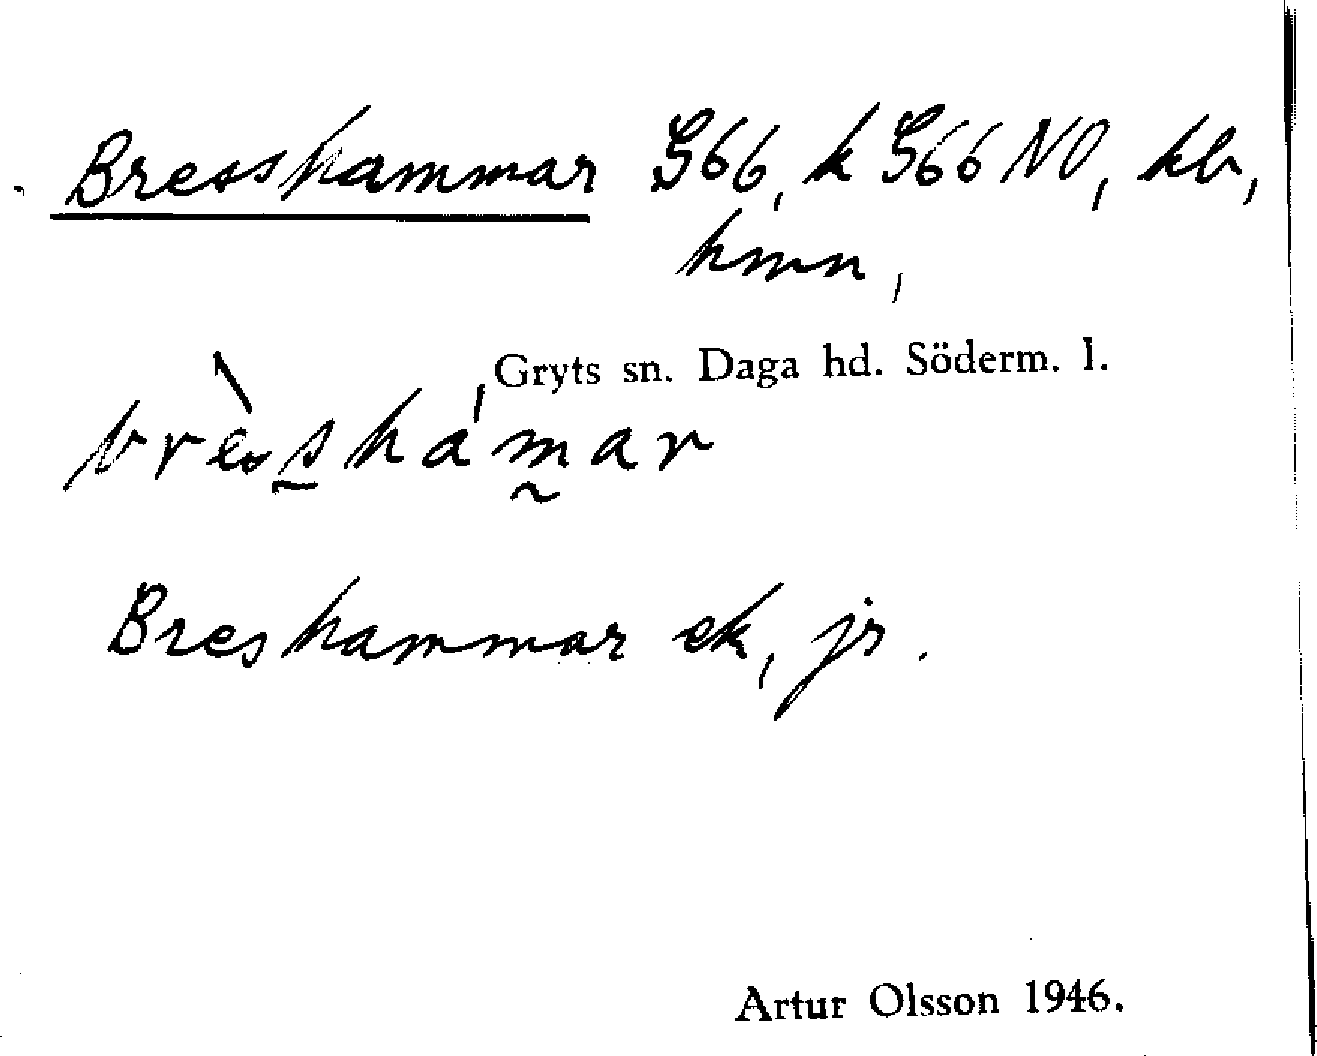 Bresshammar G66, k G66 NO, kb,
hmn,
Gryts sn. Daga hd. Söderm. l.
Breshammar ek, jr.
Artur Olsson 1946.